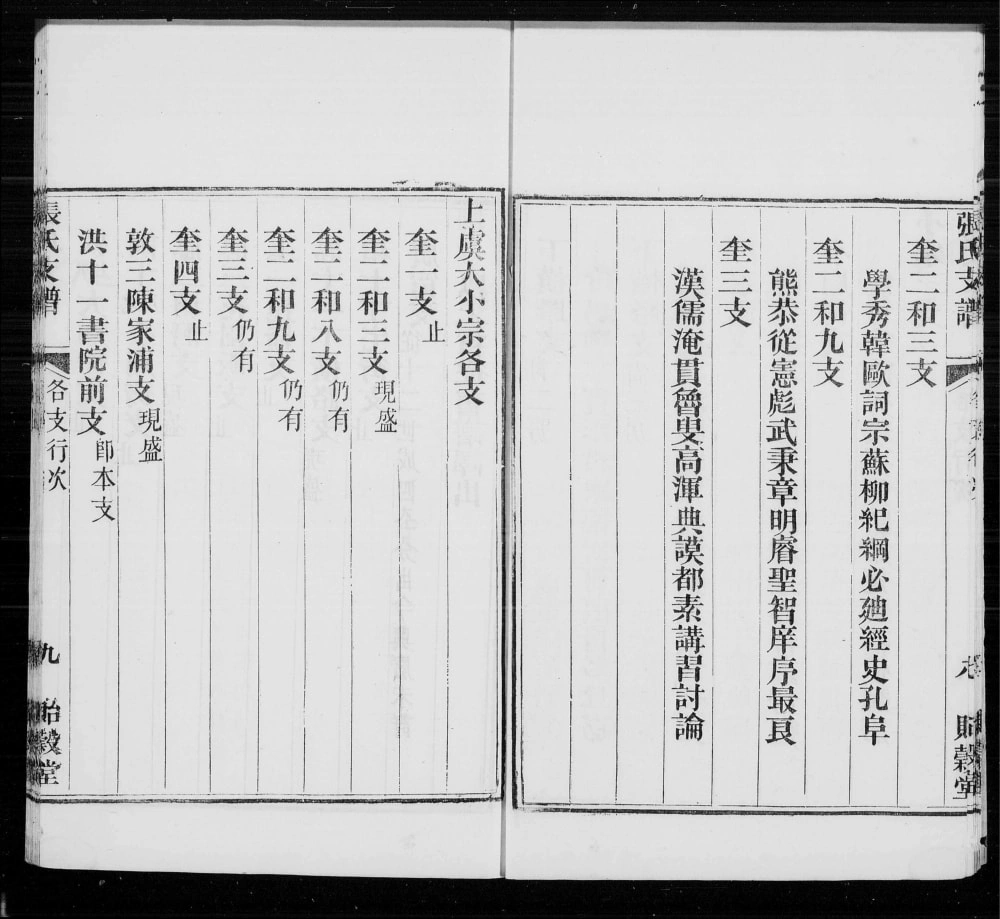 張氏支譜
奎二和三支
學秀韓歐詞宗蘇柳紀綱必廸經史孔阜
奎二和九支
熊恭從憲彪武秉章明睿聖智庠序最良
奎三支
漢儒淹貫魯叟高渾典謨都素講習討論
貽穀堂
上虞大小宗各支
奎一支止
奎二和三支現盛
奎二和八支仍有
奎二和九支仍有
奎三支仍有
奎四支止
敦三陳家浦支現盛
洪十一書院前支卽本支
張氏支譜 各支行次 九 貽穀堂